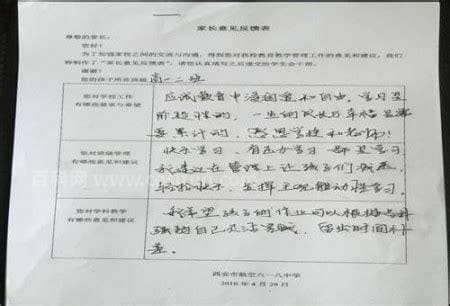 家长意见反馈表
尊敬的家长：
您好！
为了加强家校之间的交流与沟通，得到您对我校教育教学管理工作的意见和建议，我们
特制作了“家长意见反馈表”，请您认真填写之后递交给学生会干部。
谢谢！
您的孩子所在班级 高一二班
您对学校工作
有哪些要求与希望
应试教育中 和自由，学习是
阶段性的，一生的成长与幸福是
要累计的，感恩学校和老师！
您对班级管理
有哪些意见和建议
快乐学习、有 学习 都是学习
我建议在管理上让孩子们
轻松快乐，发挥主观能动性学习。
您对学科教学
有哪些意见和建议
我希望孩子们作业可以根据
强弱自己 ，留出时间补
差。
西安市航空六一八中学
2016年4月29日
百科网